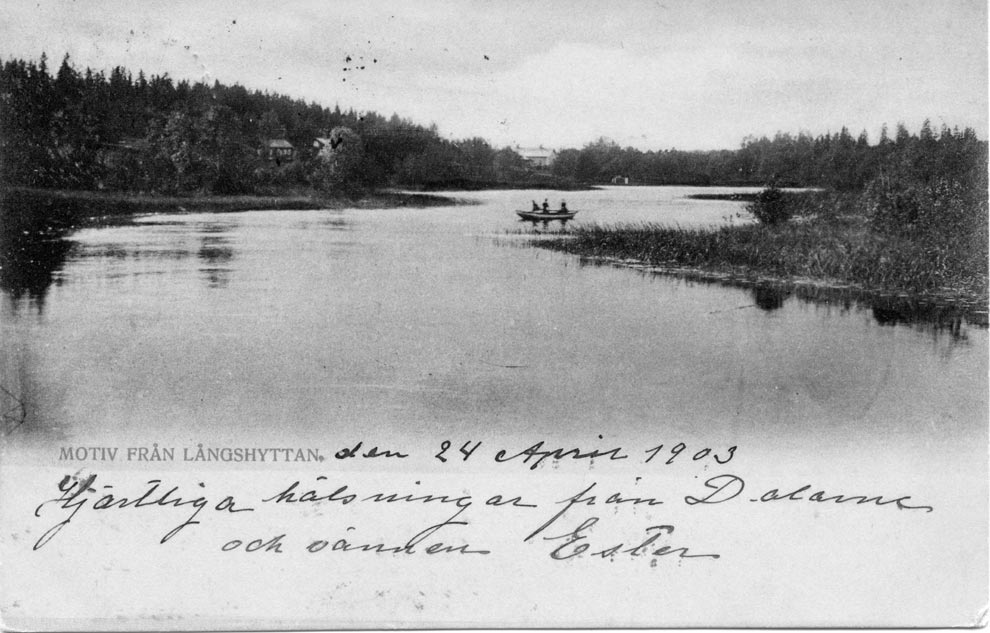 MOTIV FRÅN LÅNGSHYTTAN. den 24 April 1903
Hjärtliga hälsningar från Dalarne
och vännen Ester